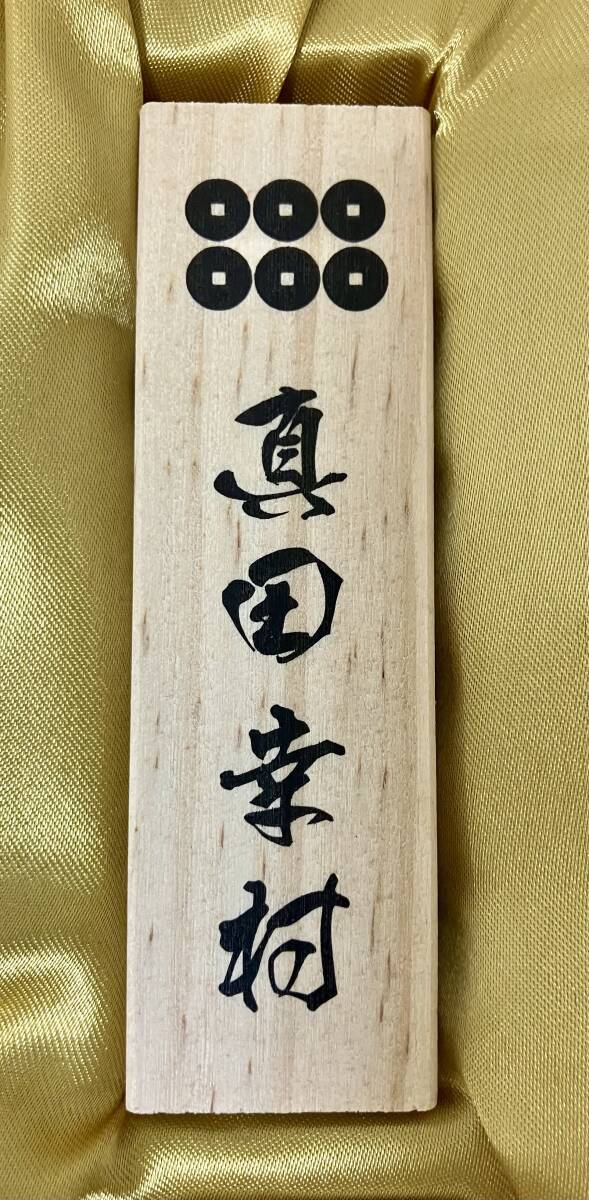 真田幸村